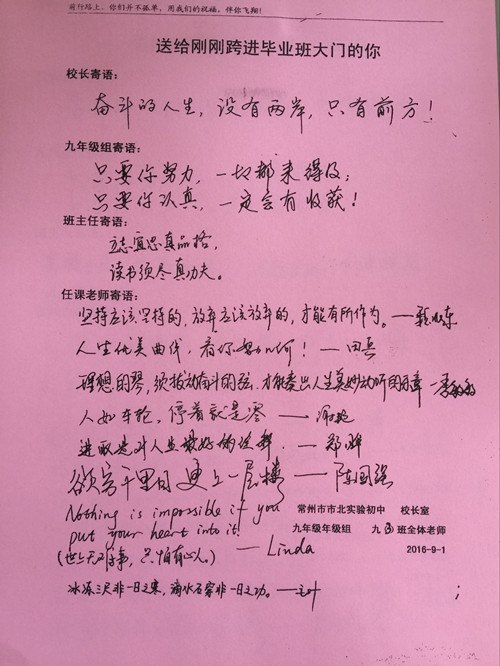 前行路上，你们并不孤单，用我们的祝福，伴你飞翔！
送给刚刚跨进毕业班大门的你
校长寄语：
奋斗的人生，没有两岸，只有前方！
九年级组寄语：
只要你努力，一切都来得及；
只要你认真，一定会有收获！
班主任寄语：
立志宜思真品格，
读书须尽真功夫。
任课老师寄语：
坚持应该坚持的，放弃应该放弃的，才能有所作为。——
人生优美曲线，看你努力如何！——田
理想的琴，须拨动奋斗的弦，才能奏出人生美妙动听的乐章——
人如车轮，停着就是滞——
进取是对人生最好的诠释。——郑
欲穷千里目 更上一层楼——陈国强
Nothing is impossible if you
put your heart into it!
(世上无难事，只怕有心人。) — Linda
常州市市北实验初中 校长室
九年级年级组 九③班全体老师
2016-9-1
冰冻三尺非一日之寒，滴水石穿非一日之功。——